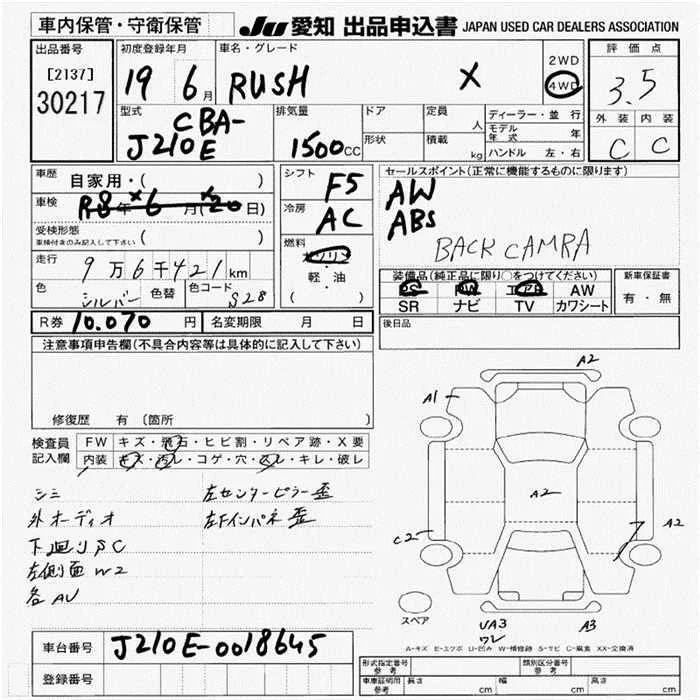 車内保管・守衛保管
JU 愛知 出品申込書 JAPAN USED CAR DEALERS ASSOCIATION
出品番号
[2137]
30217
初度登録年月
19 6月
車名・グレード
RUSH X
2WD
4WD
評価点
3.5
外装 内装
C C
型式
CBA-
J210E
排気量
1500CC
ドア
形状
定員 人
積載 kg
ディーラー・並行
モデル年式 年
ハンドル 左・右
車歴 自家用・( )
車検 R8年 6月(20日)
受検形態
車検付きのみ記入して下さい ( )
走行 9万6千421km
色 シルバー 色替 色コード S28
シフト F5
冷房 AC
燃料
ガソリン
軽・油
( )
セールスポイント(正常に機能するものに限ります)
AW
ABS
BACK CAMRA
装備品(純正品に限り○をつけてください)
PS PW エアB AW
SR ナビ TV カワシート
新車保証書
有・無
後日品
R券 10.070円 名変期限 月 日
注意事項申告欄(不具合内容等は具体的に記入して下さい)
修復歴 有 (箇所 )
検査員
記入欄
FW キズ・飛石・ヒビ割・リペア跡・X要
内装 キズ・汚レ・コゲ・穴・スレ・キレ・破レ
シミ
外オーディオ
下廻りSC
左側面W2
各AU
左センターピラー歪
左Fインパネ歪
A2
A1
A2
A2
C2
スペア
UA3
ワレ
A3
A-キズ E-エクボ U-凹み W-補修跡 S-サビ C-腐食 XX-交換済
車台番号 J210E-0018645
登録番号
形式指定番号
参考
類別区分番号
参考
車庫証明用
参考
長さ cm 幅 cm 高さ cm